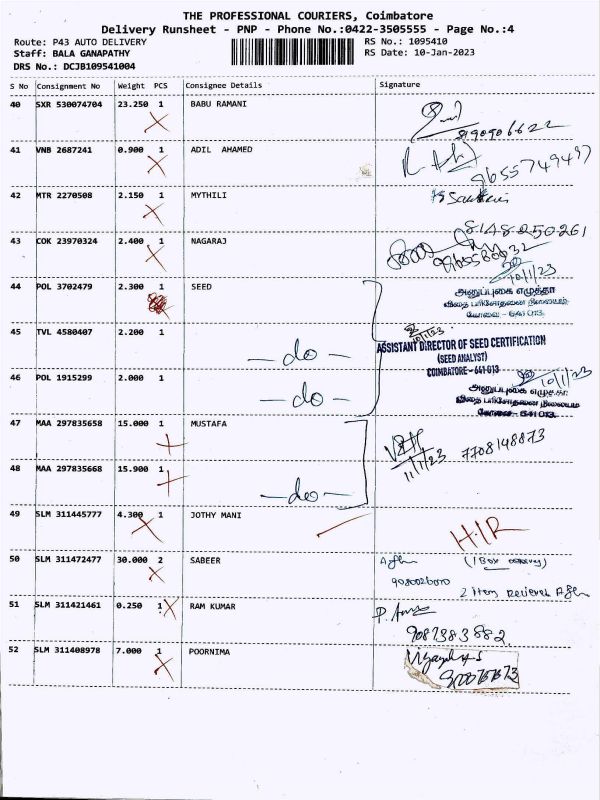 THE PROFESSIONAL COURIERS, Coimbatore
Delivery Runsheet - PNP - Phone No.:0422-3505555 - Page No.:4
Route: P43 AUTO DELIVERY RS No.: 1095410
Staff: BALA GANAPATHY RS Date: 10-Jan-2023
DRS No.: DCJB109541004
S No Consignment No Weight PCS Consignee Details Signature
40 SXR 530074704 23.250 1 BABU RAMANI
41 VNB 2687241 0.900 1 ADIL AHAMED
9655749497
42 MTR 2270508 2.150 1 MYTHILI
8148250261
43 COK 23970324 2.400 1 NAGARAJ
10/1/23
44 POL 3702479 2.300 1 SEED
அனுப்புகை எழுத்தர்
விதை பரிசோதனை நிலையம்
கோவை - 641 013.
45 TVL 4580407 2.200 1 - do -
10/1/23
ASSISTANT DIRECTOR OF SEED CERTIFICATION
(SEED ANALYST)
COIMBATORE - 641 013
46 POL 1915299 2.000 1 - do -
10/1/23
அனுப்புகை எழுத்தர்
விதை பரிசோதனை நிலையம்
கோவை - 641 013.
47 MAA 297835658 15.000 1 MUSTAFA
7708148873
11/1/23
48 MAA 297835668 15.900 1 - do -
49 SLM 311445777 4.300 1 JOTHY MANI H.I.R
50 SLM 311472477 30.000 2 SABEER
2 Item Recieved
51 SLM 311421461 0.250 1 RAM KUMAR
9087383882
52 SLM 311408978 7.000 1 POORNIMA